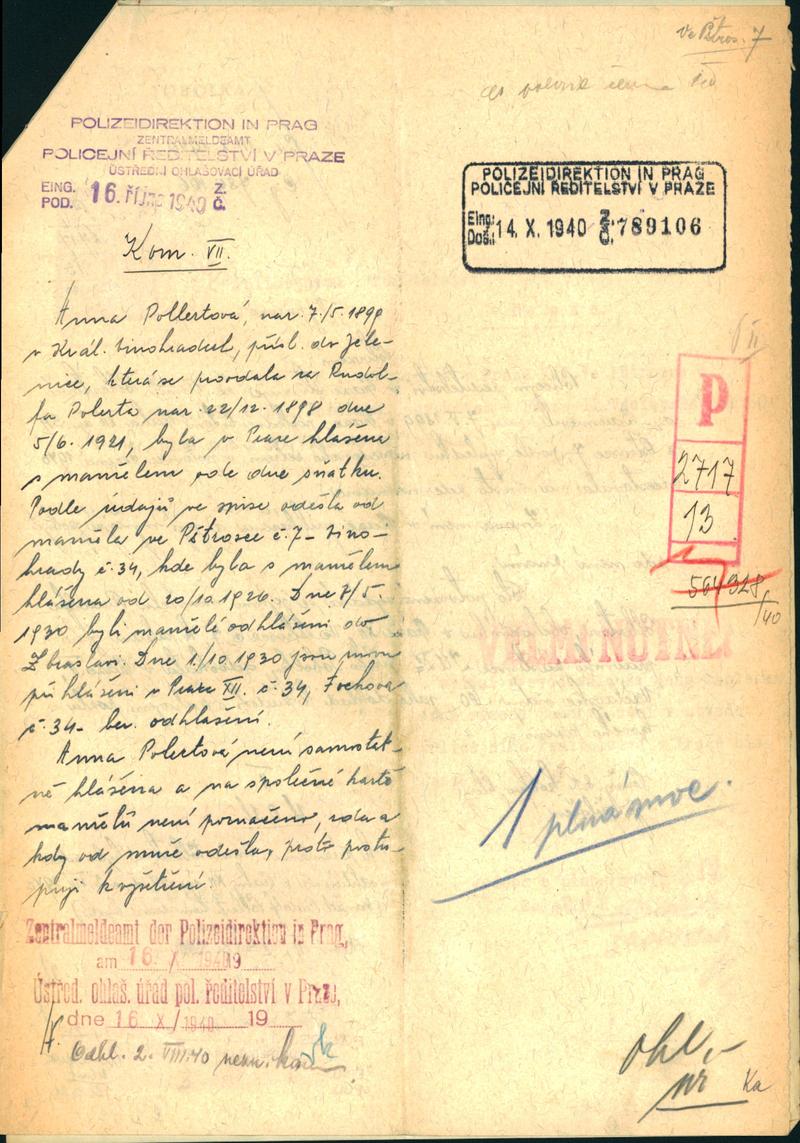 Ve Pštros. 7
POLIZEIDIREKTION IN PRAG
ZENTRALMELDEAMT
POLICEJNÍ ŘEDITELSTVÍ V PRAZE
ÚSTŘEDNÍ OHLAŠOVACÍ ÚŘAD
EING. Z.
POD. 16. ŘÍJNA 1940 Č.
POLIZEIDIREKTION IN PRAG
POLICEJNÍ ŘEDITELSTVÍ V PRAZE
Eing: Z.
Došl: 14. X. 1940 Č. 789106
Kom. VII.
Anna Pollertová, nar. 7./5. 1898
v Král. Vinohradech, přísl. do Jele-
nice, která se provdala za Rudol-
fa Polerta nar. 22/12. 1898 dne
5/6. 1921, byla v Praze hlášena
s manželem ode dne sňatku.
Podle údajů ve spise odešla od
manžela ve Pštrosce č. 7 - Vino-
hrady č. 34, kde byla s manželem
hlášena od 20/10. 1926. Dne 7/5.
1930 byli manželé odhlášeni do
Zbraslavi. Dne 1./10. 1930 jsou znovu
přihlášeni v Praze XII. č. 34, Fochova
č. 34 - bez odhlášení.
Anna Polertová není samostat-
ně hlášena a na společné kartě
manželů není poznačeno, zda a
kdy od muže odešla, proto postu-
puji k vyšetření.
VII
P
2717
13
564928
/40
VELMI NUTNÉ!
1 plná moc.
Zentralmeldeamt der Polizeidirektion in Prag,
am 16. X. 1940 19
Ústřed. ohlaš. úřad pol. ředitelství v Praze,
dne 16 X/1940 19
Odhl. 2. VIII. 40
ohl.
nr
Ka